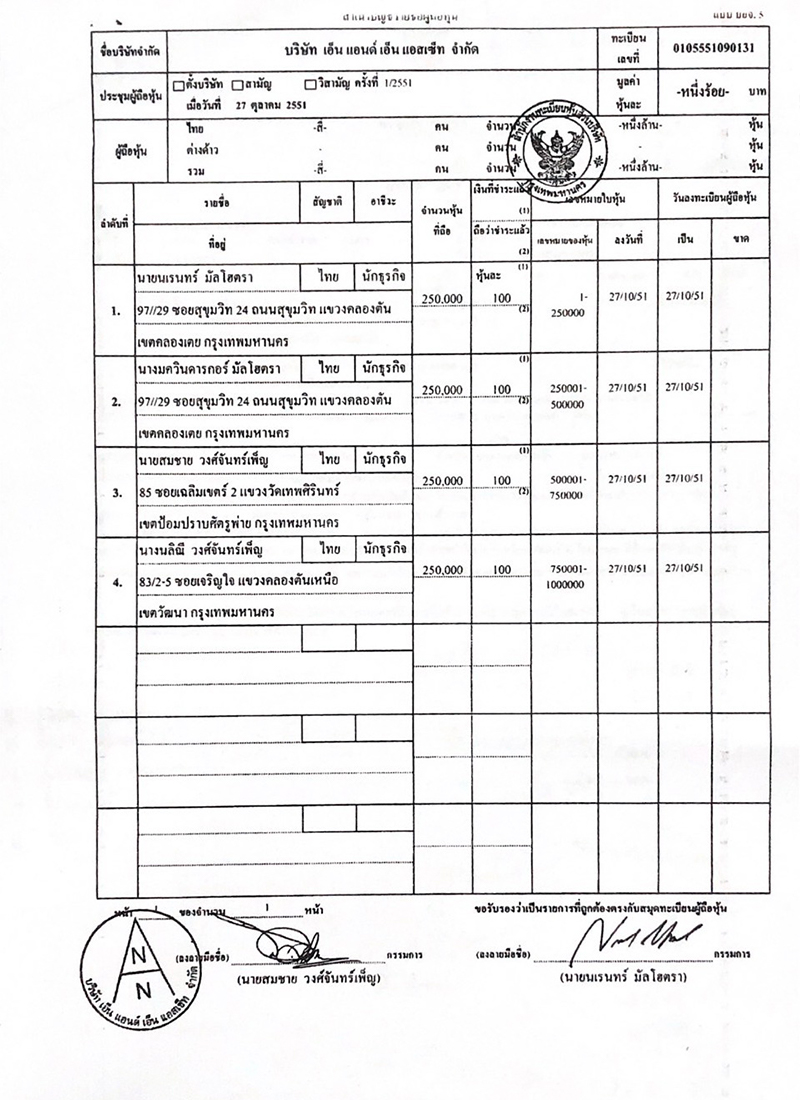 สำเนาบัญชีรายชื่อผู้ถือหุ้น
แบบ บอจ. 5
ชื่อบริษัทจำกัด บริษัท เอ็น แอนด์ เอ็น แอสเซ็ท จำกัด ทะเบียนเลขที่ 0105551090131
ประชุมผู้ถือหุ้น ตั้งบริษัท สามัญ วิสามัญ ครั้งที่ 1/2551 มูลค่าหุ้นละ -หนึ่งร้อย- บาท
เมื่อวันที่ 27 ตุลาคม 2551
ผู้ถือหุ้น ไทย -สี่- คน จำนวน -หนึ่งล้าน- หุ้น
ต่างด้าว - คน จำนวน - หุ้น
รวม -สี่- คน จำนวน -หนึ่งล้าน- หุ้น
สำนักงานทะเบียนหุ้นส่วนบริษัท
กรุงเทพมหานคร
ลำดับที่ รายชื่อ สัญชาติ อาชีวะ จำนวนหุ้นที่ถือ เงินที่ชำระแล้ว (1) เลขหมายใบหุ้น วันลงทะเบียนผู้ถือหุ้น
ที่อยู่ ถือว่าชำระแล้ว (2) เลขหมายของหุ้น ลงวันที่ เป็น ขาด
หุ้นละ (1)
1. นายนเรนทร์ มัลโฮตรา ไทย นักธุรกิจ 250,000 100 (2) 1-250000 27/10/51 27/10/51
97//29 ซอยสุขุมวิท 24 ถนนสุขุมวิท แขวงคลองตัน
เขตคลองเตย กรุงเทพมหานคร
2. นางมควินดารกอร์ มัลโฮตรา ไทย นักธุรกิจ 250,000 100 (1) (2) 250001-500000 27/10/51 27/10/51
97//29 ซอยสุขุมวิท 24 ถนนสุขุมวิท แขวงคลองตัน
เขตคลองเตย กรุงเทพมหานคร
3. นายสมชาย วงศ์จันทร์เพ็ญ ไทย นักธุรกิจ 250,000 100 (1) (2) 500001-750000 27/10/51 27/10/51
85 ซอยเฉลิมเขตร์ 2 แขวงวัดเทพศิรินทร์
เขตป้อมปราบศัตรูพ่าย กรุงเทพมหานคร
4. นางนลิณี วงศ์จันทร์เพ็ญ ไทย นักธุรกิจ 250,000 100 750001-1000000 27/10/51 27/10/51
83/2-5 ซอยเจริญใจ แขวงคลองตันเหนือ
เขตวัฒนา กรุงเทพมหานคร
หน้า ของจำนวน 1 หน้า ขอรับรองว่าเป็นรายการที่ถูกต้องตรงกับสมุดทะเบียนผู้ถือหุ้น
(ลงลายมือชื่อ) กรรมการ (ลงลายมือชื่อ) กรรมการ
(นายสมชาย วงศ์จันทร์เพ็ญ) (นายนเรนทร์ มัลโฮตรา)
A N N
บริษัท เอ็น แอนด์ เอ็น แอสเซ็ท จำกัด